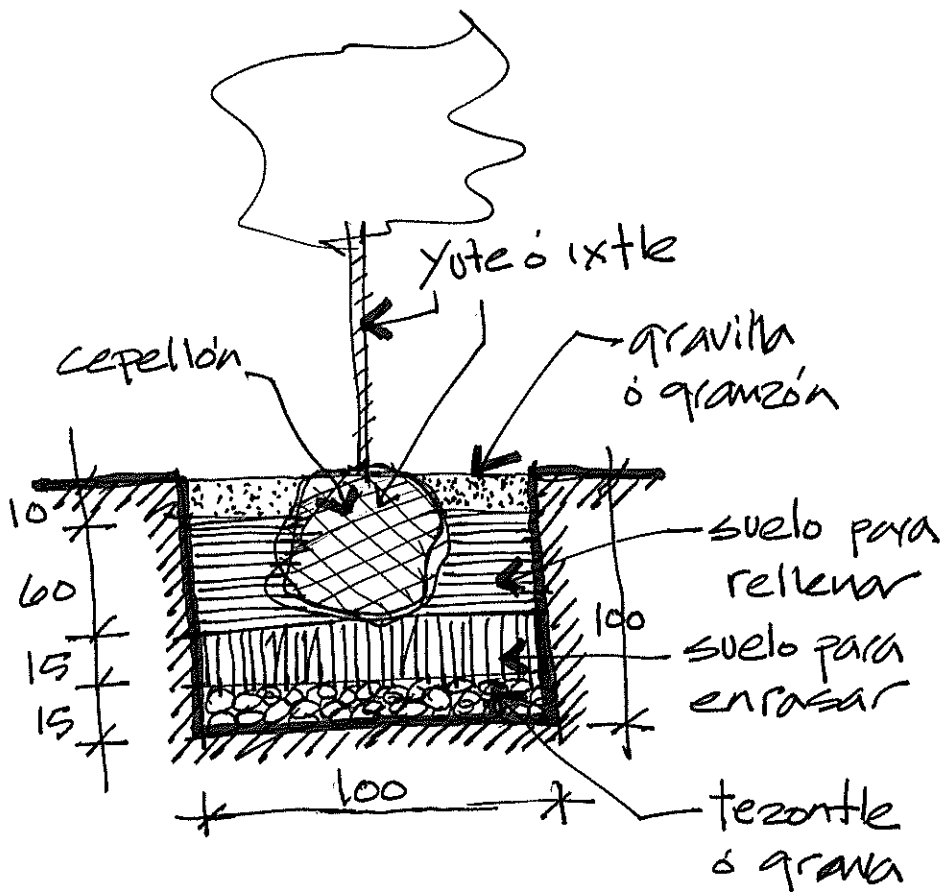 yute ó ixtle
cepellón
gravilla
ó granzón
10
60
15
15
100
suelo para
rellenar
suelo para
enrasar
100
tezontle
ó grava